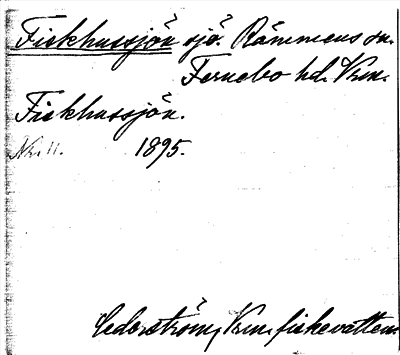 Fiskhussjön sjö. Rämmens sn.
Fernebo hd. Vrm.
Fiskhussjön.
1895.
Cederström, Vrm. fiskevatten